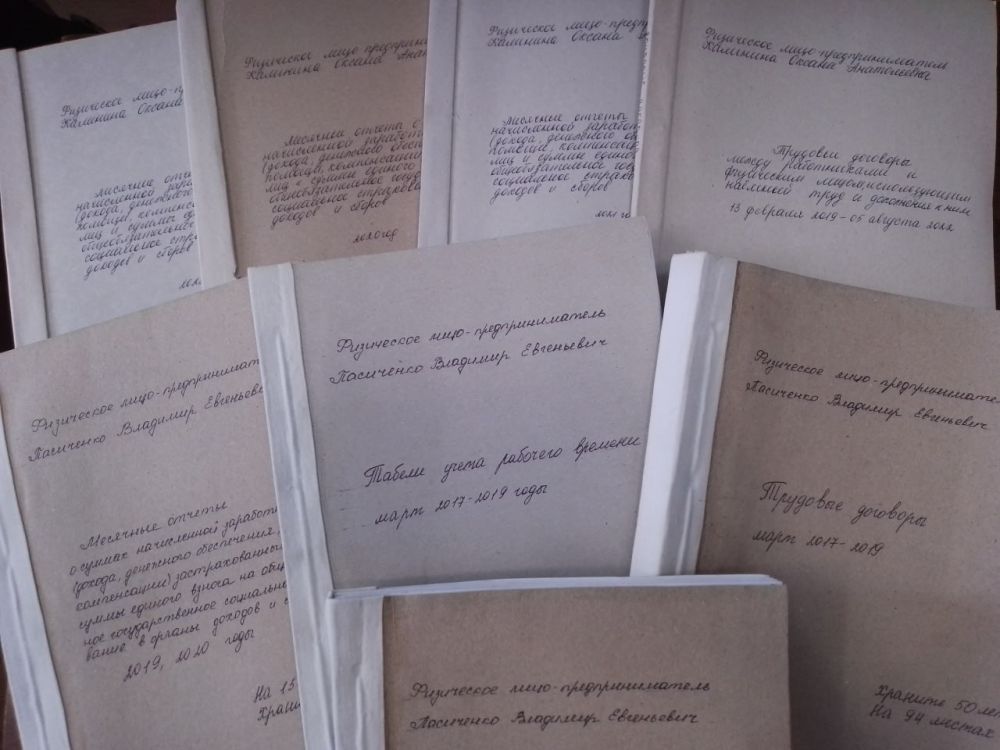 Физическое лицо-пр
Калинина Оксана
месячные отче
начисленной зара
(дохода, денежного
помощи, компенса
лиц и суммы
общеобязательно
социальное стра
доходов и сборов
Физическое лицо предприним
Калинина Оксана Ана
Месячные отчеты о
начисленной заработ
(дохода, денежного обесп
помощи, компенсации
лиц и суммы единого
общеобязательное госуд
социальное страхова
доходов и сборов
2020 год
Физическое лицо-предпр
Калинина Оксана
Месячные отчеты
начисленной заработ
(дохода, денежного об
помощи, компенсаци
лиц и суммы единог
общеобязательное госу
социальное страхо
доходов и сборов
Физическое лицо-предприниматель
Калинина Оксана Анатольевна
Трудовые договора
между работниками и
физическим лицом, использующим
наемный труд и дополнения к ним
13 февраля 2019-05 августа 2022
Физическое лицо-предпринимат
Пасиченко Владимир Евгеньев
Месячные отчеты
о суммах начисленной заработн
(дохода, денежного обеспечения,
компенсации) застрахованных
суммы единого взноса на общ
ное государственное социальн
вание в органы доходов и с
2019, 2020 годы
На 15
Храни
Физическое лицо-предприниматель
Пасиченко Владимир Евгеньевич
Табели учета рабочего времени
март 2017-2019 годы
Физическое лицо-предпринимате
Пасиченко Владимир Евгеньевич
Трудовые договоры
март 2017-2019
Хранить 50 лет
На 94 листах
Физическое лицо-предприниматель
Пасиченко Владимир Евгеньевич